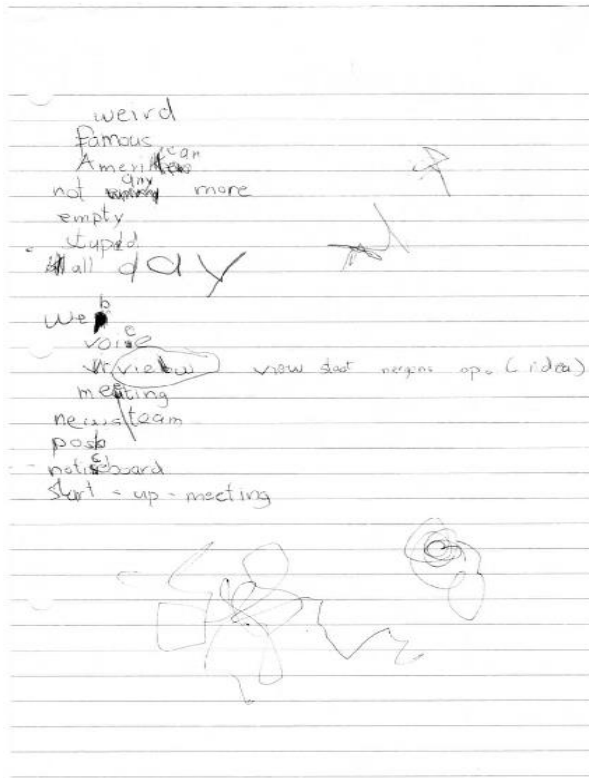 weird
famous
American
not any more
empty
stupid
all day
web
voice
view view (idea)
meeting
news team
post
noticeboard
start-up-meeting